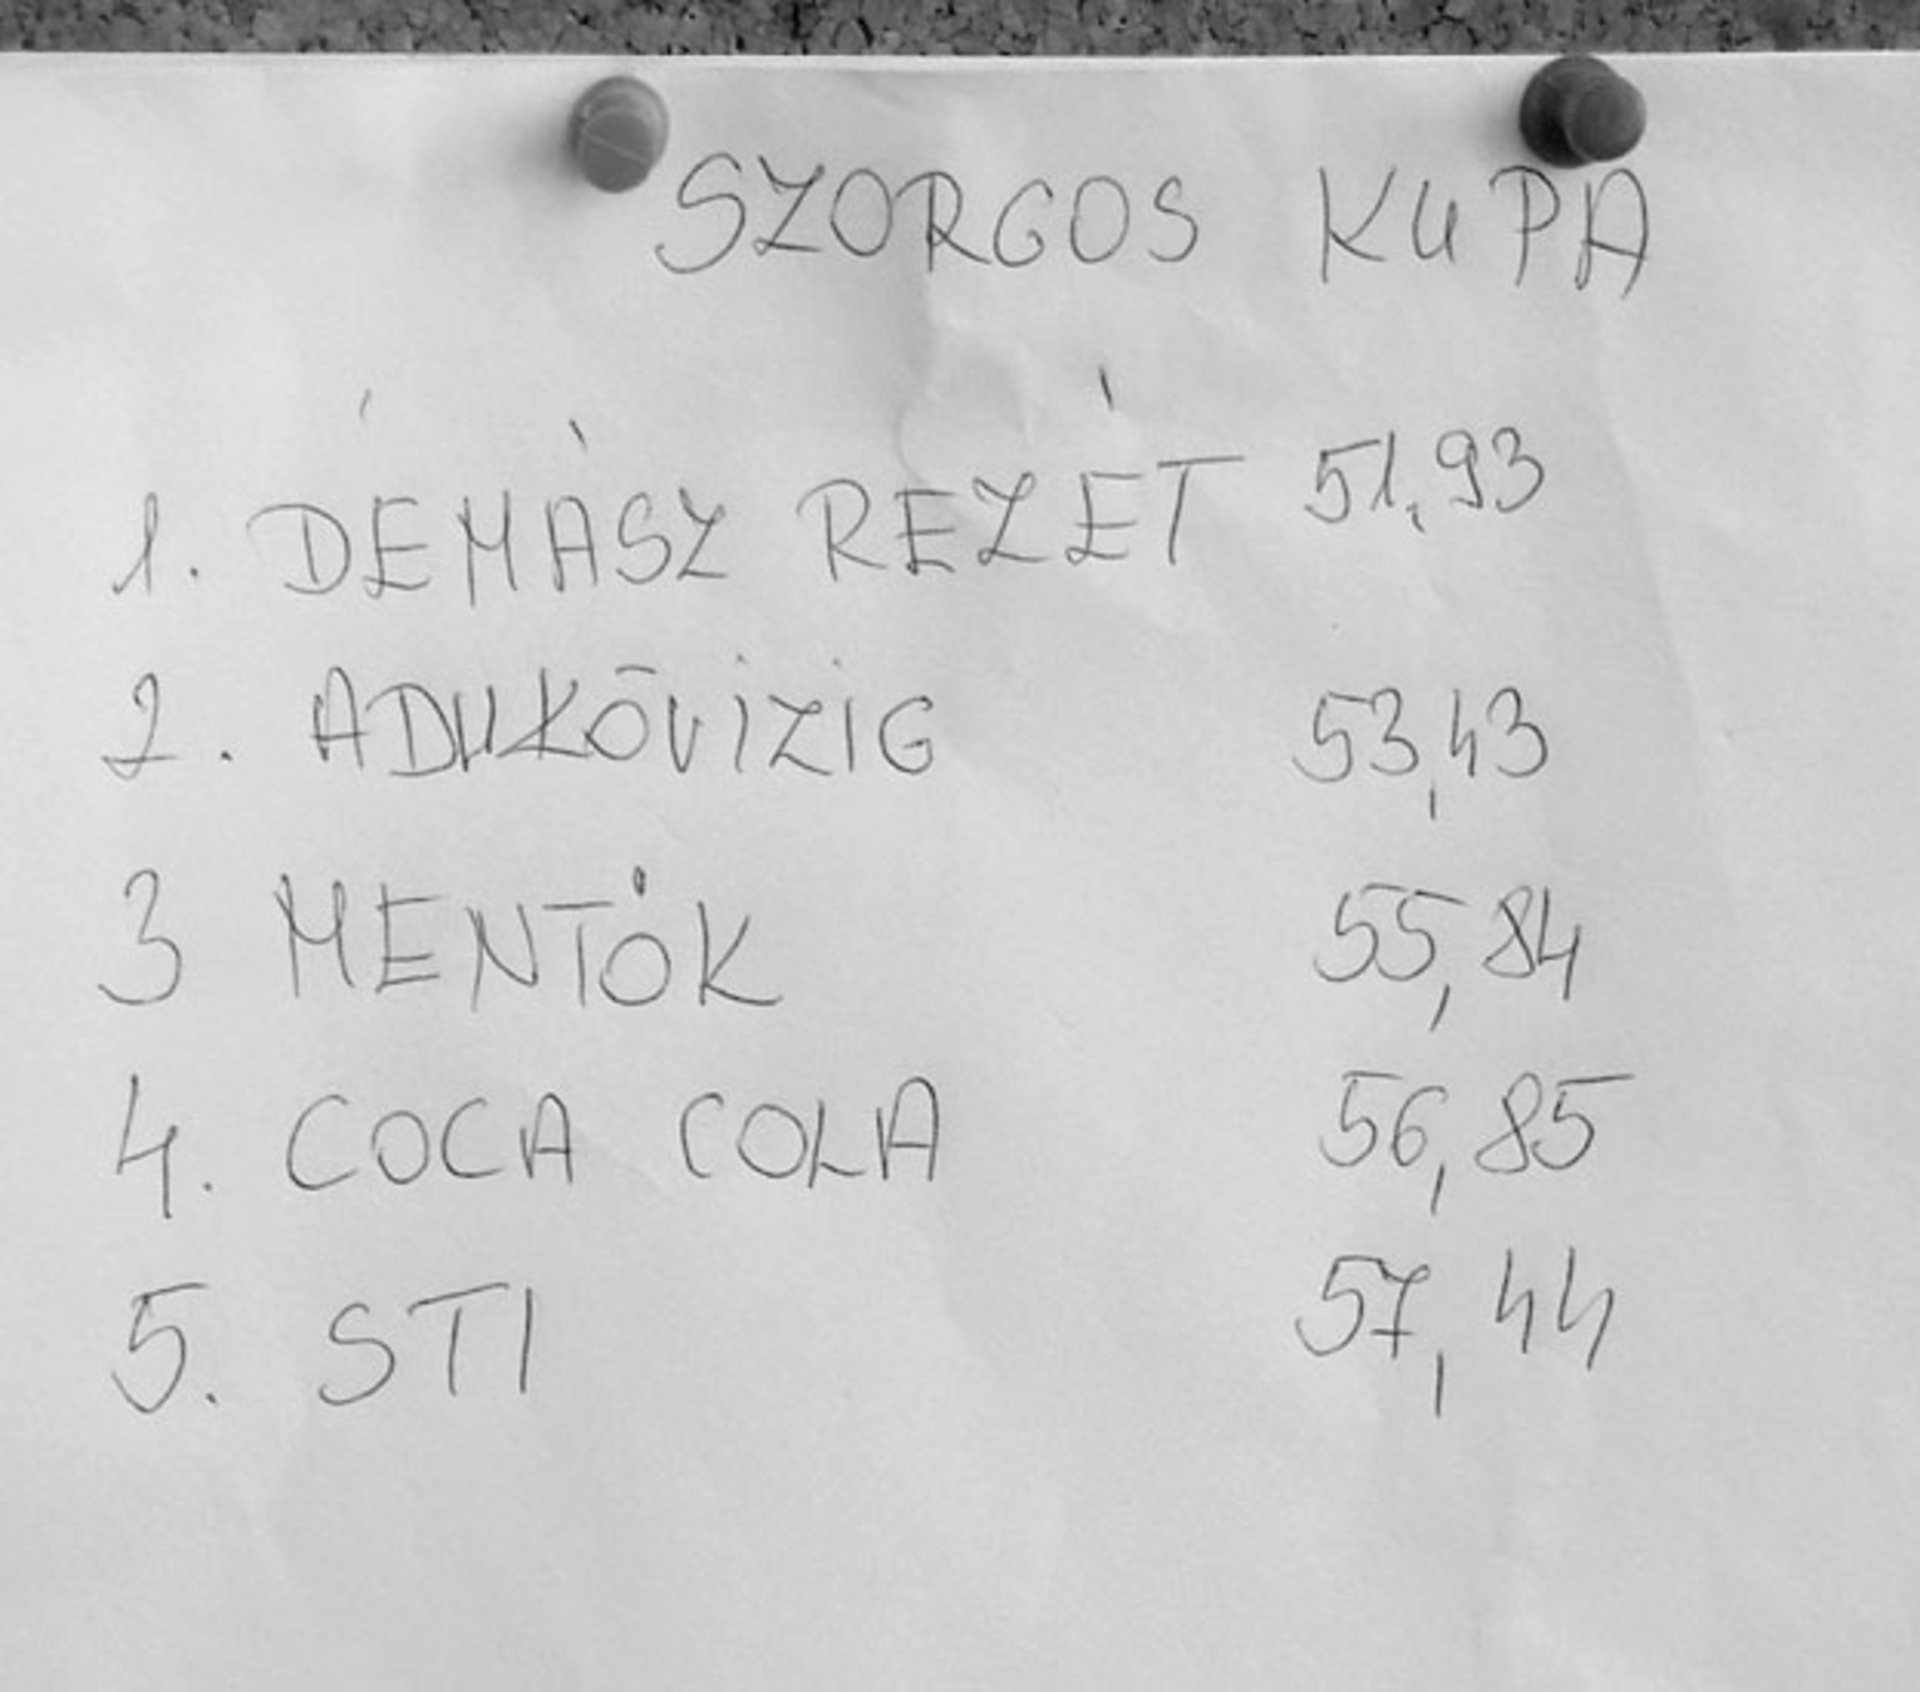 SZORGOS KUPA
1. DÉMÁSZ REZÉT 51,93
2. ADUKŐVIZIG 53,43
3 MENTŐK 55,84
4. COCA COLA 56,85
5. STI 57,44